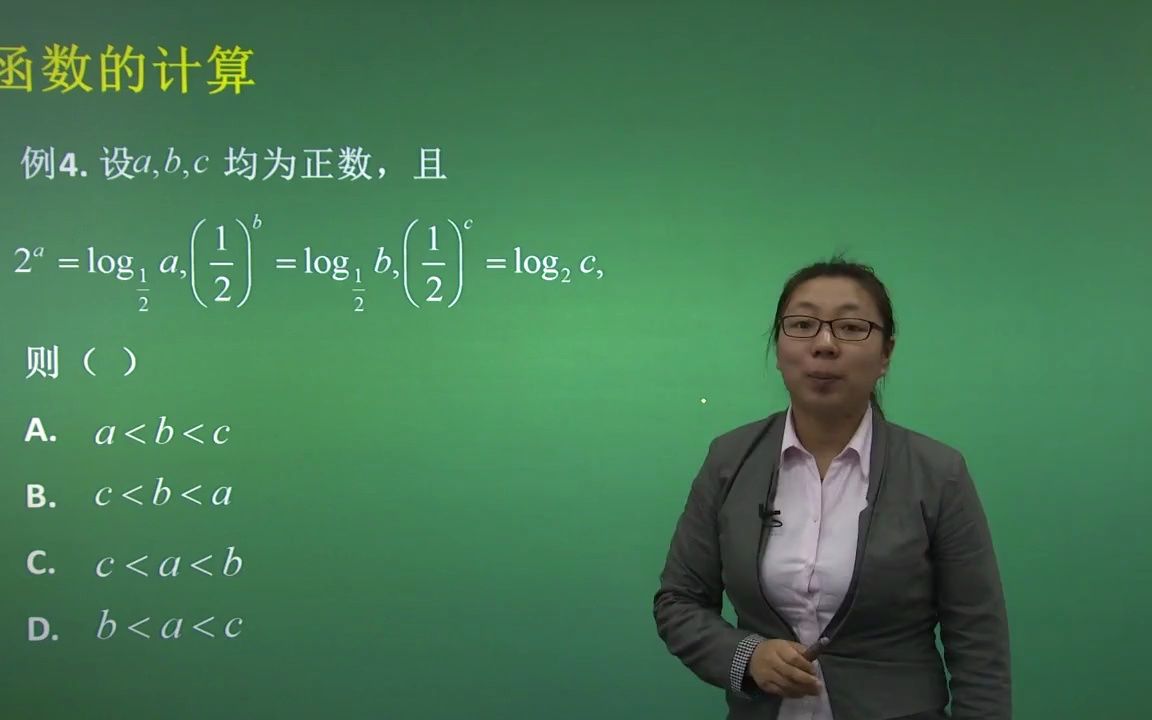 函数的计算
例4. 设a,b,c 均为正数，且
2^a = log_{1/2} a, (1/2)^b = log_{1/2} b, (1/2)^c = log_2 c,
则（ ）
A. a < b < c
B. c < b < a
C. c < a < b
D. b < a < c